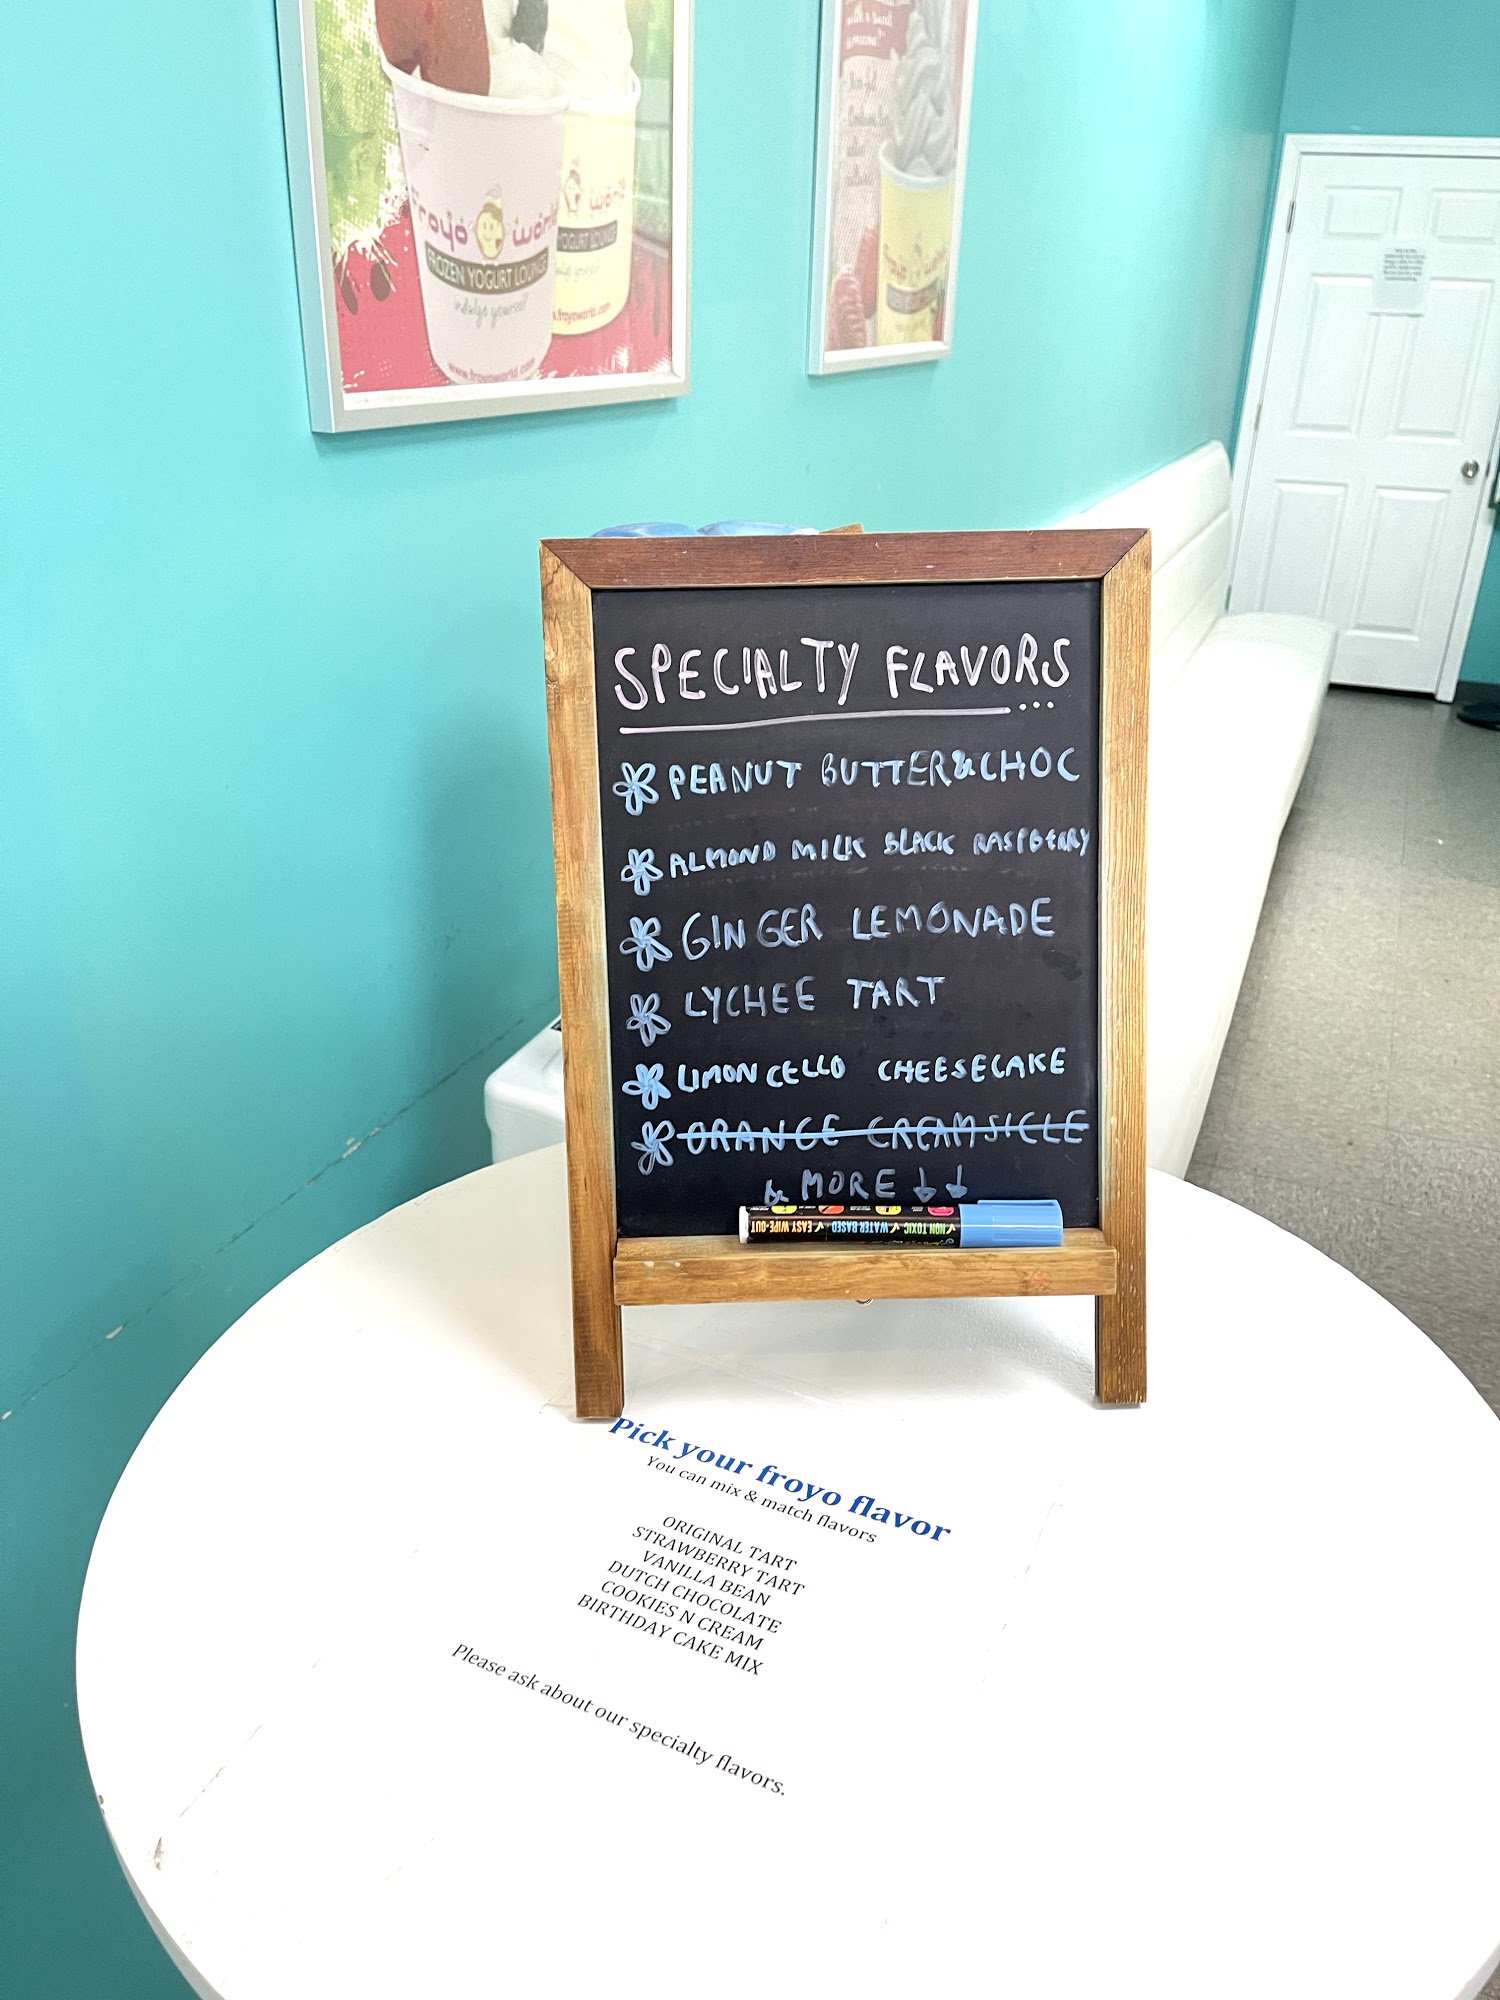 froyo world
FROZEN YOGURT LOUNGE
indulge yourself
www.froyoworld.com
SPECIALTY FLAVORS...
PEANUT BUTTER&CHOC
ALMOND MILK BLACK RASPBERRY
GINGER LEMONADE
LYCHEE TART
LIMONCELLO CHEESECAKE
ORANGE CREAMSICLE
& MORE ↓↓
✓ NON TOXIC ✓ WATER BASED ✓ EASY WIPE-OUT
Pick your froyo flavor
You can mix & match flavors
ORIGINAL TART
STRAWBERRY TART
VANILLA BEAN
DUTCH CHOCOLATE
COOKIES N CREAM
BIRTHDAY CAKE MIX
Please ask about our specialty flavors.